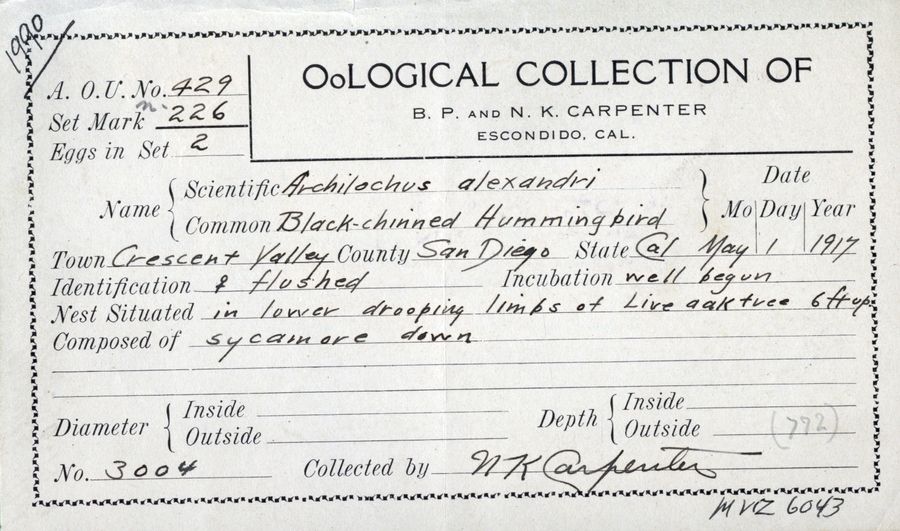 1990
OoLOGICAL COLLECTION OF
B. P. AND N. K. CARPENTER
ESCONDIDO, CAL.
A. O. U. No. 429
Set Mark n. 226
Eggs in Set 2
Name { Scientific Archilochus alexandri
Common Black-chinned Hummingbird
Date
Mo Day Year
Town Crescent Valley County San Diego State Cal May 1 1917
Identification ♀ flushed Incubation well begun
Nest Situated in lower drooping limbs of Live oak tree 6 ft up.
Composed of sycamore down
Diameter { Inside
Outside
Depth { Inside
Outside (772)
No. 3004 Collected by N K Carpenter
MVZ 6043